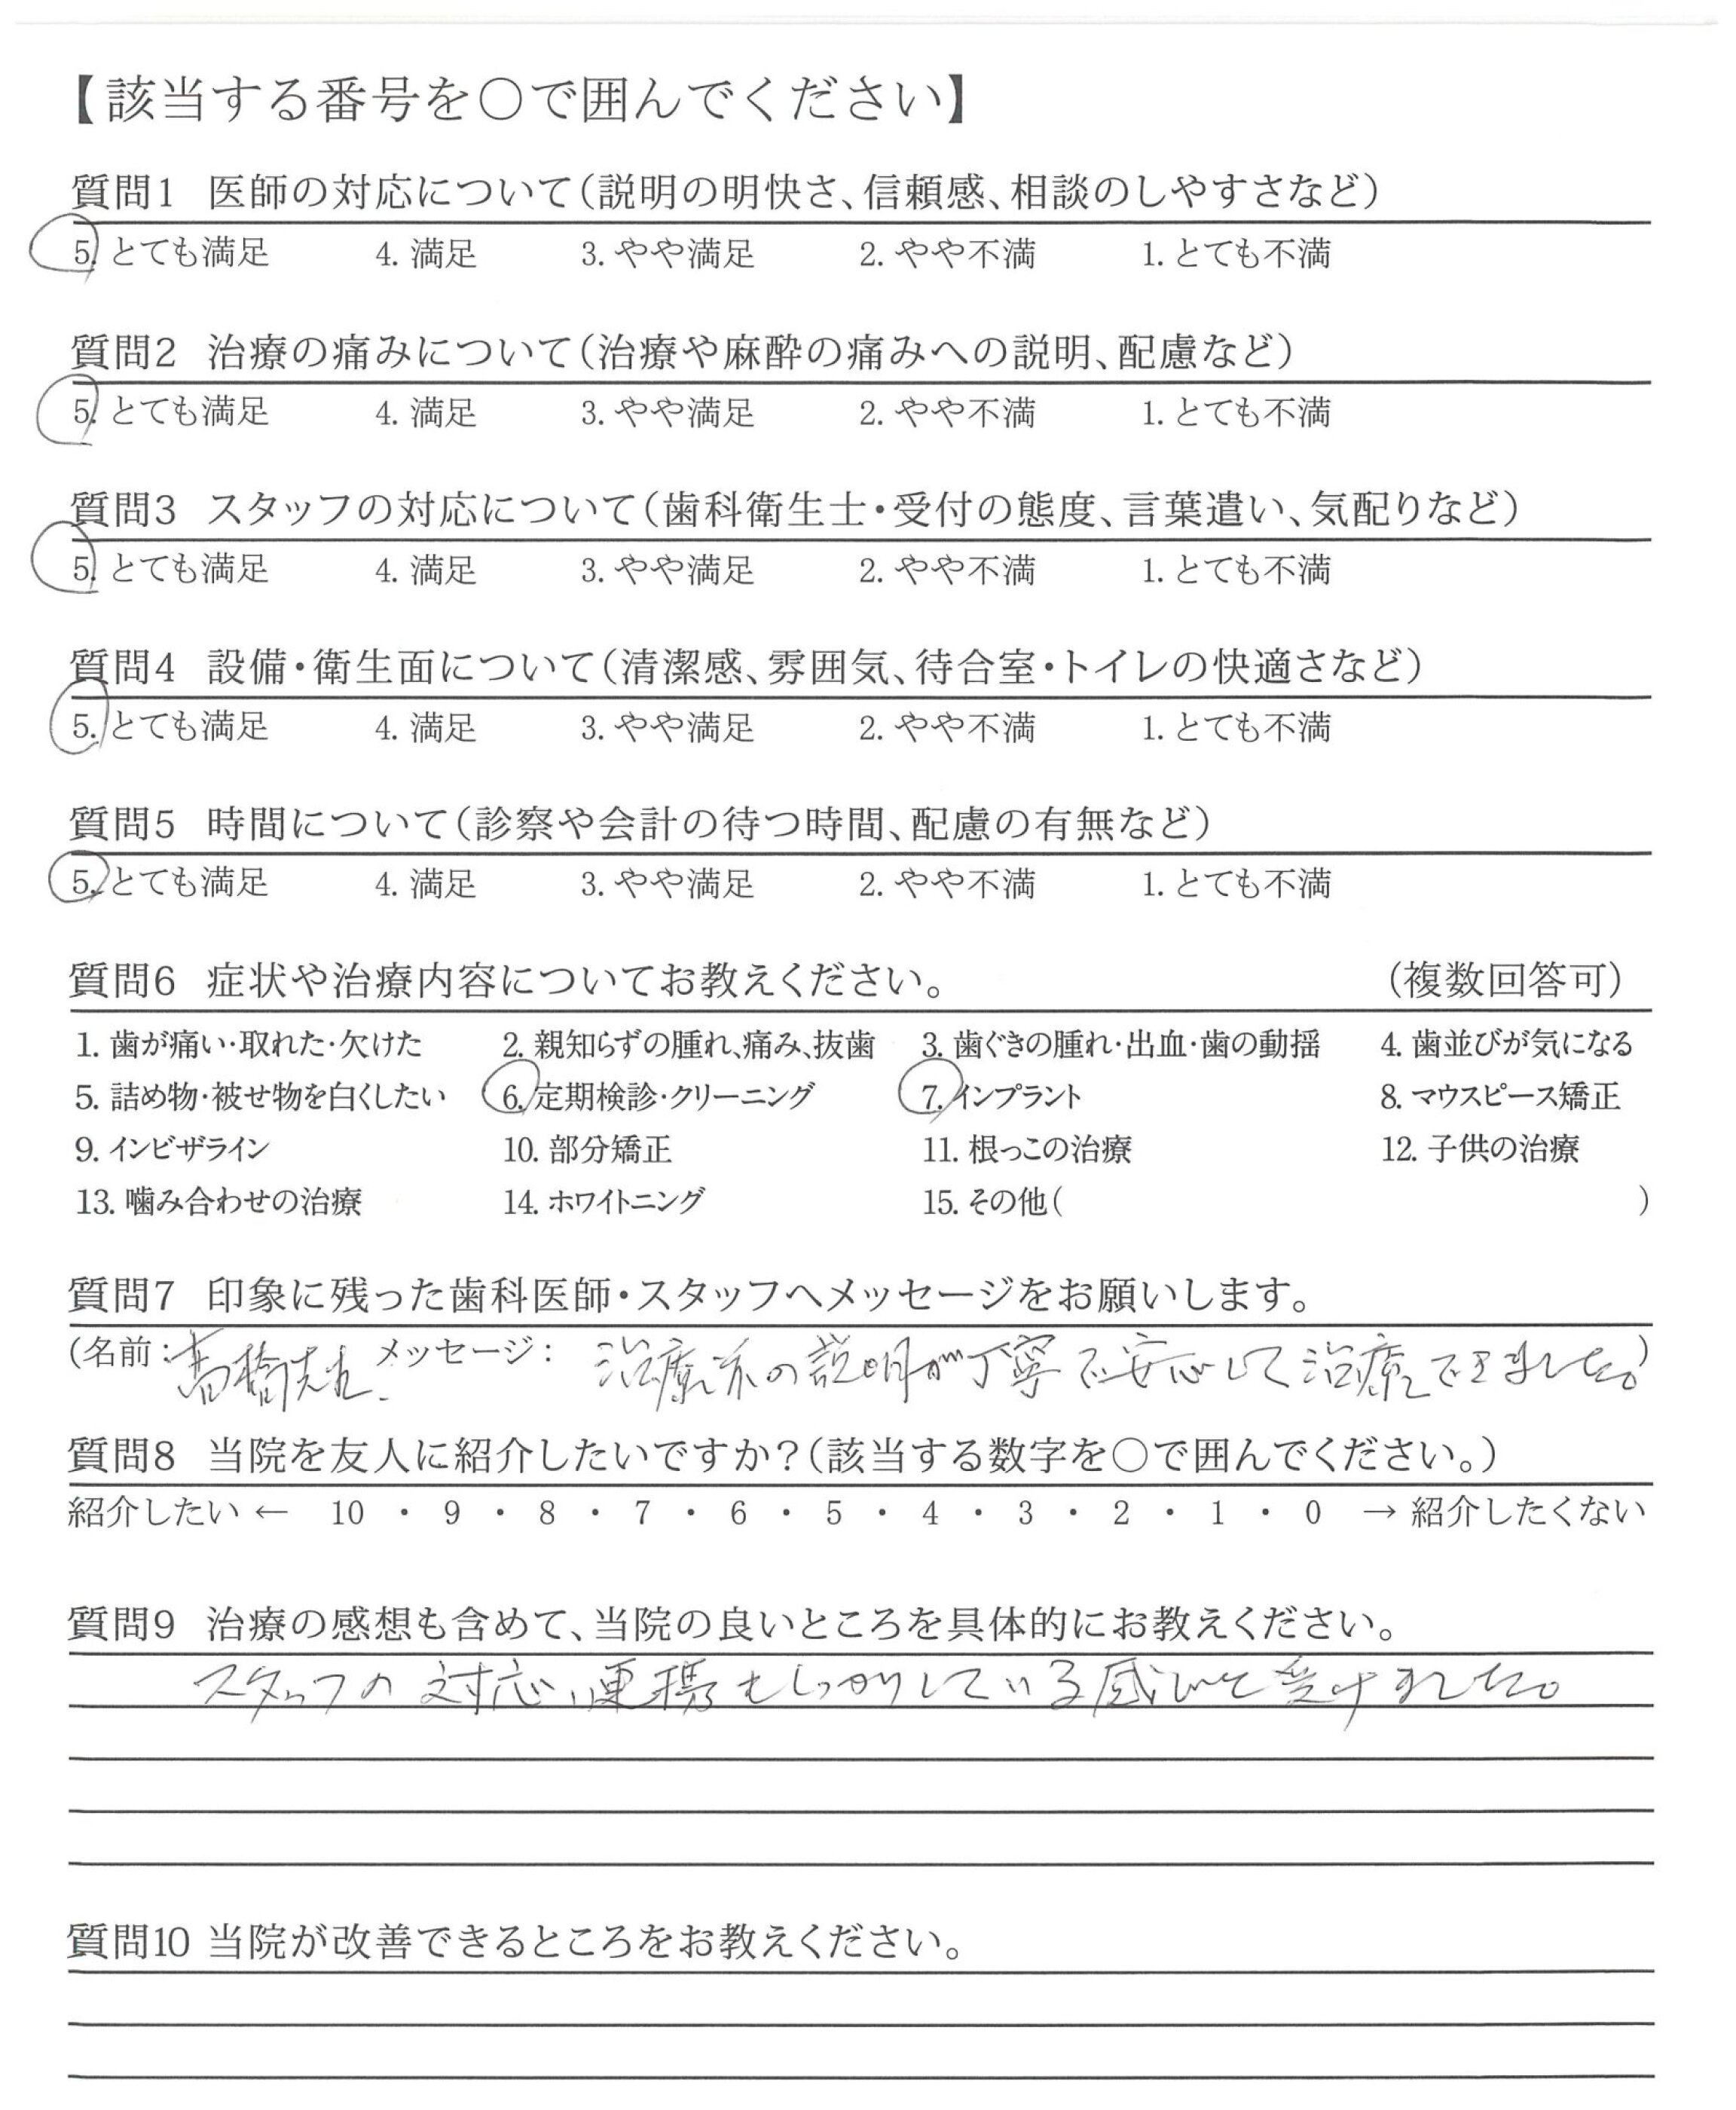 【該当する番号を○で囲んでください】
質問1 医師の対応について(説明の明快さ、信頼感、相談のしやすさなど)
5. とても満足 4. 満足 3. やや満足 2. やや不満 1. とても不満
質問2 治療の痛みについて(治療や麻酔の痛みへの説明、配慮など)
5. とても満足 4. 満足 3. やや満足 2. やや不満 1. とても不満
質問3 スタッフの対応について(歯科衛生士・受付の態度、言葉遣い、気配りなど)
5. とても満足 4. 満足 3. やや満足 2. やや不満 1. とても不満
質問4 設備・衛生面について(清潔感、雰囲気、待合室・トイレの快適さなど)
5. とても満足 4. 満足 3. やや満足 2. やや不満 1. とても不満
質問5 時間について(診察や会計の待つ時間、配慮の有無など)
5. とても満足 4. 満足 3. やや満足 2. やや不満 1. とても不満
質問6 症状や治療内容についてお教えください。 (複数回答可)
1. 歯が痛い・取れた・欠けた 2. 親知らずの腫れ、痛み、抜歯 3. 歯ぐきの腫れ・出血・歯の動揺 4. 歯並びが気になる
5. 詰め物・被せ物を白くしたい 6. 定期検診・クリーニング 7. インプラント 8. マウスピース矯正
9. インビザライン 10. 部分矯正 11. 根っこの治療 12. 子供の治療
13. 噛み合わせの治療 14. ホワイトニング 15. その他( )
質問7 印象に残った歯科医師・スタッフへメッセージをお願いします。
(名前:高橋先生. メッセージ: 治療の説明が丁寧で安心して治療できました。)
質問8 当院を友人に紹介したいですか?(該当する数字を○で囲んでください。)
紹介したい ← 10 ・ 9 ・ 8 ・ 7 ・ 6 ・ 5 ・ 4 ・ 3 ・ 2 ・ 1 ・ 0 → 紹介したくない
質問9 治療の感想も含めて、当院の良いところを具体的にお教えください。
スタッフの対応、連携もしっかりしている感じを受けました。
質問10 当院が改善できるところをお教えください。